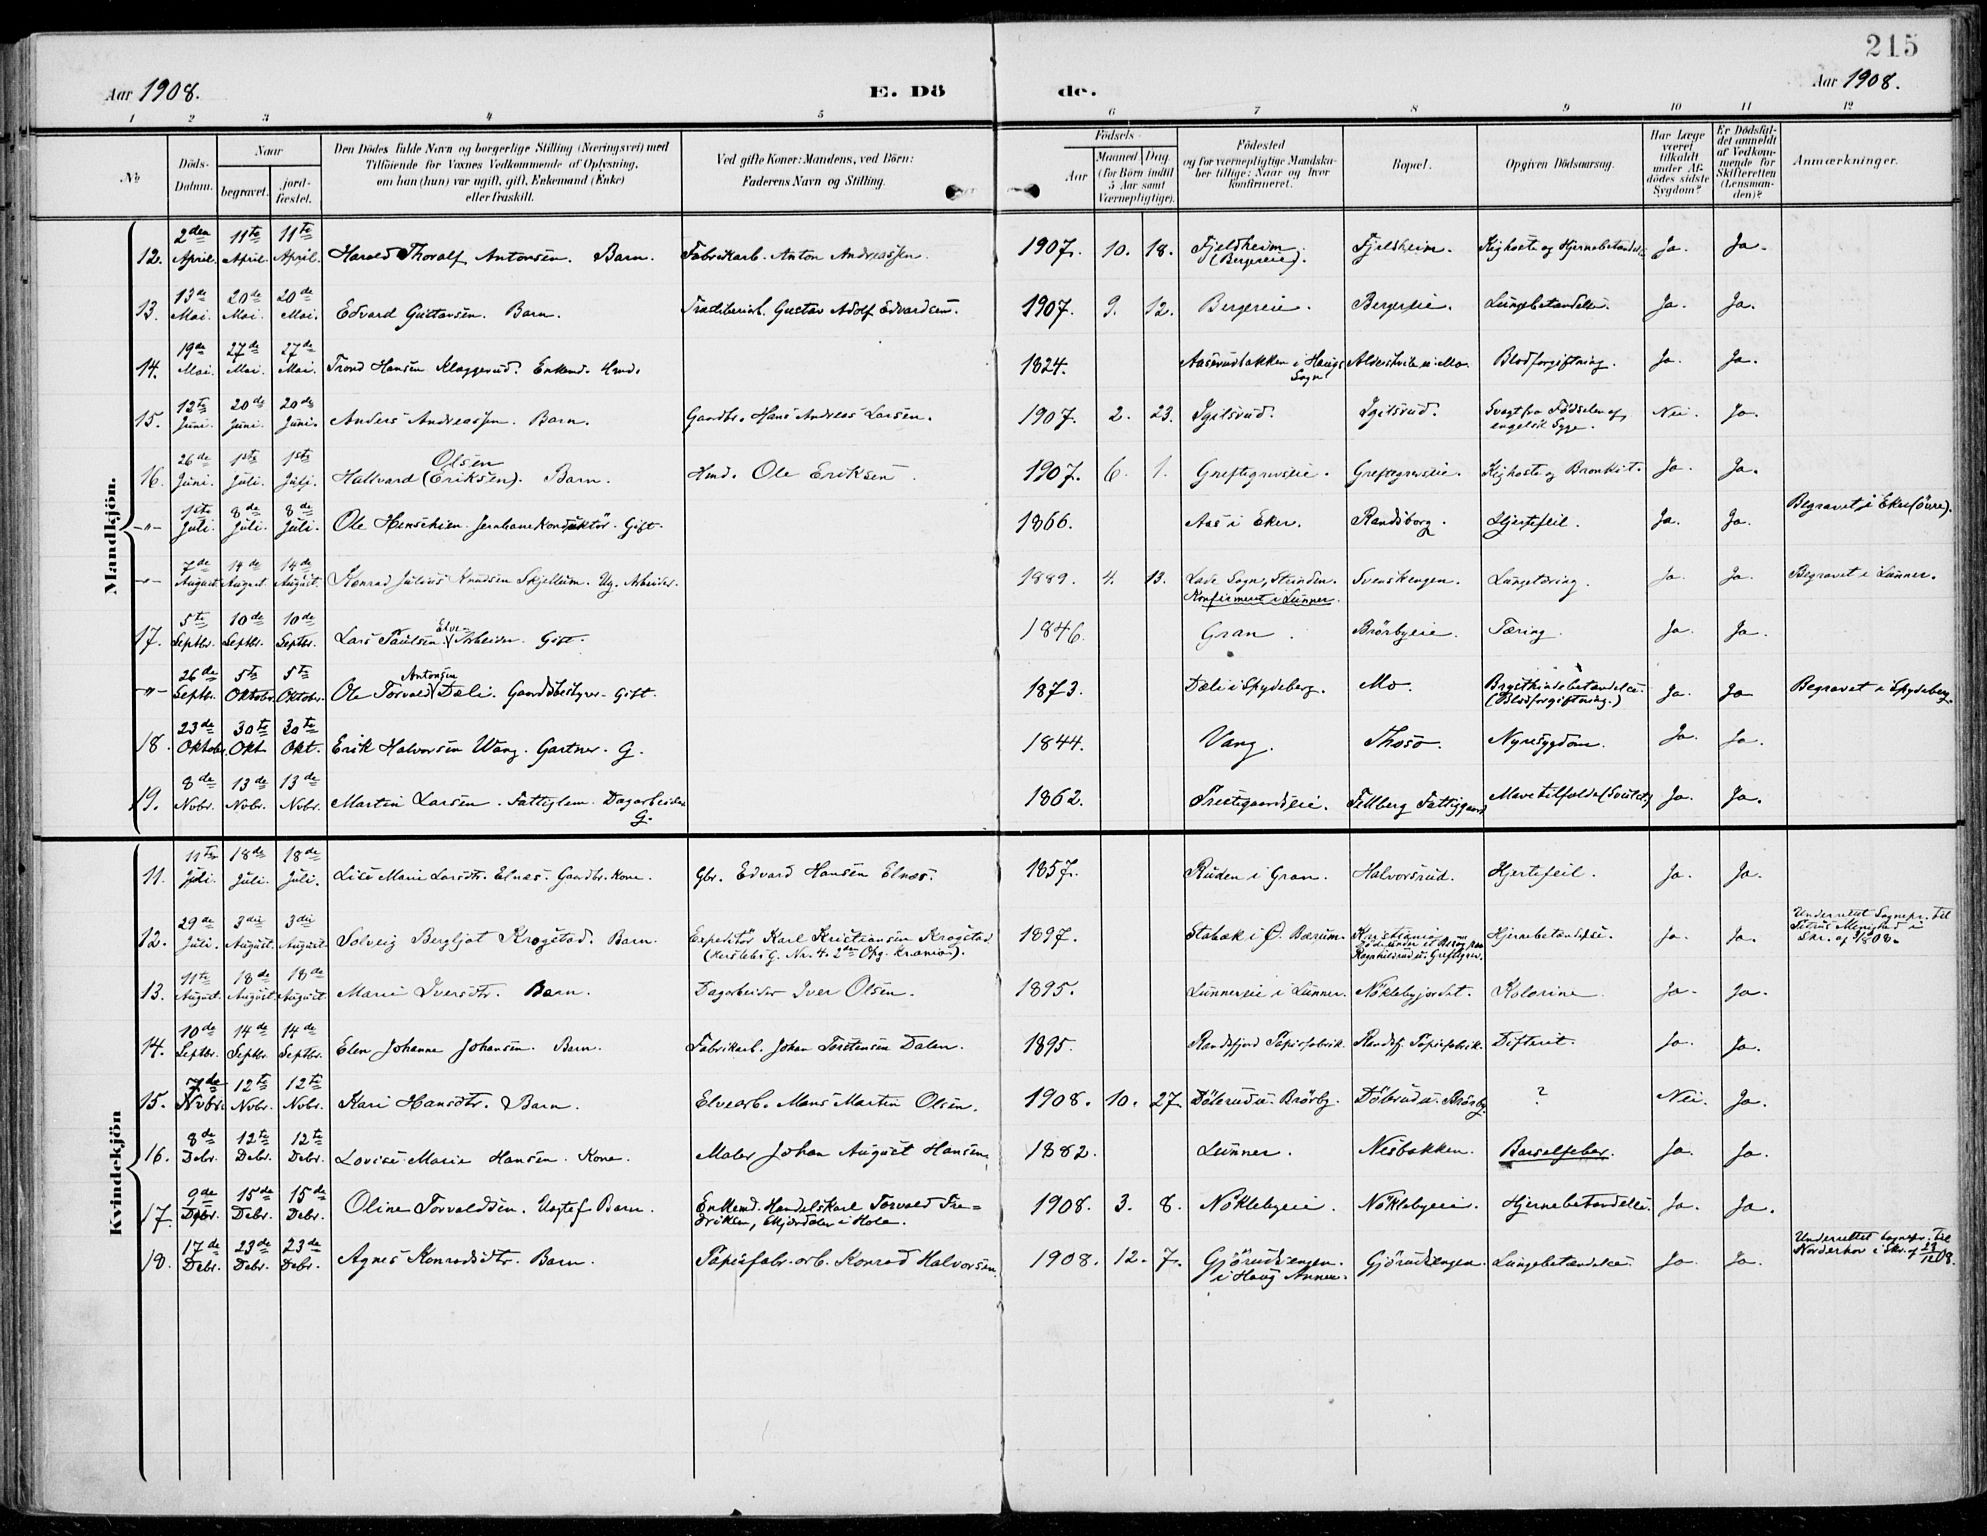 215
Aar 1908. E. Dö de. Aar 1908.
1 2 3 4 5 6 7 8 9 10 11 12
№
Döds-Datum.
Naar
begravet.
jord-fæstet.
Den Dödes fulde Navn og borgerlige Stilling (Næringsvei) med
Tilföiende for Voxnes Vedkommende af Oplysning,
om han (hun) var ugift, gift, Enkemand (Enke)
eller fraskilt.
Ved gifte Koner: Mandens, ved Börn:
Faderens Navn og Stilling.
Födsels-
Aar
Maaned Dag
(for Börn indtil
5 Aar samt
Værnepligtige).
Födested
og for værnepligtige Mandska-
ber tillige: Naar og hvor
konfirmeret.
Bopæl.
Opgiven Dödsaarsag.
Har Læge
været
tilkaldt
under Af-
dödes sidste
Sygdom?
Er Dödsfal-
det anmeldt
af Vedkom-
mende for
Skifteretten
(Lensman-
den)?
Anmærkninger.
Mandkjön.
12. 2den April. 11te April 11te April. Harald Thoralf Antonsen. Barn. Fabrikarb. Anton Andreassen. 1907. 10. 18. Fjeldheim (Bergereie). Fjeldheim. Kighoste og Hjernebetændelse Ja. Ja.
13. 13de Mai. 20de Mai. 20de Mai. Edvard Gustavsen. Barn. Træsliberiarb. Gustav Adolf Edvardsen. 1907. 9. 12. Bergereie. Bergereie. Lungebetændelse. Ja. Ja.
14. 19de Mai. 27de Mai. 27de Mai. Trond Hansen Klæggerud. Enkemd. Hmd. 1824. Aaserudbakken i Haugs Sogn Alderslvile u. Mo. Blodforgiftning. Ja. Ja.
15. 12te Juni. 20de Juni. 20de Juni. Anders Andreassen. Barn. Gaardbr. Hans Andreas Larsen. 1907. 2. 23. Igelsrud. Igelsrud. Svagt fra Födselen af, engelsk Syge. Nei. Ja.
16. 26de Juni. 1ste Juli. 1ste Juli. Hallvard (Eriksen) Olsen. Barn. Hmd. Ole Eriksen. 1907. 6. 1. Greftegreveie. Greftegreveie. Kighoste og Bronkit. Ja. Ja.
-"- 1ste Juli. 8de Juli. 8de Juli. Ole Henschien. Jernbanekonduktör. Gift. 1866. Aas i Eker. Randsborg. Hjertefeil. Ja. Ja. Begravet i Eker (övre).
-"- 7de August. 14de August. 14de August. Konrad Julius Knudsen Skjellum. Ug. Arbeider. 1889. 4. 13. Lade Sogn, Strinden. Konfirmeret i Lunner. Svenskengen. Lungetæring. Ja. Ja. Begravet i Lunner.
17. 5te Septbr. 10de Septbr. 10de Septbr. Lars Paulsen. Elve-Arbeider. Gift. 1846. Gran. Brörbyeie. Tæring. Ja. Ja.
-"- 26de Septbr. 5te Oktober 5te Oktober. Ole Torvald Antonsen Dæli. Gaardsbestyrer. Gift. 1873. Dæli i Spydeberg. Mo. Brysthindebetændelse. (Blodforgiftning.) Ja. Ja Begravet i Spydeberg.
18. 23de Oktober. 30te Okt. 30te Okt. Erik Halvorsen Wang. Gartner. G. 1844. Vang. Thoso. Nyresygdom. Ja. Ja.
19. 8de Novbr. 13de Novbr. 13de Novbr. Martin Larsen. Fattiglem. Dagarbeider G. 1862. Prestegaardseie. Fellberg Fattiggaard Mavetilfælde (Sultet) Ja. Ja.
Kvindekjön
11. 11te Juli. 18de Juli. 18de Juli. Lise Marie Larsdtr. Elnæs. Gaardbr. Kone. Gbr. Edvard Hansen Elnæs. 1857. Ruden i Gran. Halvorsrud. Hjertefeil. Ja. Ja.
12. 29de Juli. 3die August. 3die August. Solveig Bergljot Krogstad. Barn. Expeditör Karl Kristiansen Krogstad (Herslebs G. Nr. 4. 2den Opg. Krania). 1897. Stabæk i Ö. Bærum. Kristiania Döde under et Besög paa Ragnhildrud u. Greftegrev. Hjernebetændelse. Ja. Ja. Underrettet Sognepr. til Petrus Menighed i Skr. af 3/8 08.
13. 11te August. 18de August. 18de August. Marie Iversdtr. Barn. Dagarbeider Iver Olsen. 1895. Lunnereie i Lunner. Nöklebyjordet. Kolerine. Ja. Ja.
14. 10de Septbr. 14de Septbr. 14de Septbr. Elen Johanne Johansen. Barn. Fabrikarb. Johan Torstensen Dalen. 1895. Randsfjord Papirfabrik. Randsfj. Papirfabrik. Difterit. Ja. Ja.
15. 7de Novbr. 12te Novbr. 12te Novbr. Kari Hansdtr. Barn. Elvearb. Hans Martin Olsen. 1908. 10. 27. Döbrud u. Brörby. Döbrud u. Brörby ? Nei. Ja.
16. 8de Debr. 12te Debr. 12te Debr. Lovise Marie Hansen. Kone. Maler Johan August Hansen. 1882. Lunner. Nesbakken. Barselfeber. Ja. Ja.
17. 9de Debr. 15de Debr. 15de Debr. Oline Torvaldsen. Uægtef. Barn. Enkemd. Handelskarl Torvald Fre=driksen, Skjærdalen i Hole. 1908. 3. 8. Nöklebyeie. Nöklebyeie. Hjernebetændelse. Ja. Ja.
18. 17de Debr. 23de Debr. 23de Debr. Agnes Konradsdtr. Barn. Papirfabr.arb. Konrad Halvorsen. 1908. 12. 7. Gjörudsengen. i Haug Annex. Gjörudsengen. Lungebetændelse. Ja. Ja. Underrettet Sognepr. til Norderhov i Skr. af 29/12 08.